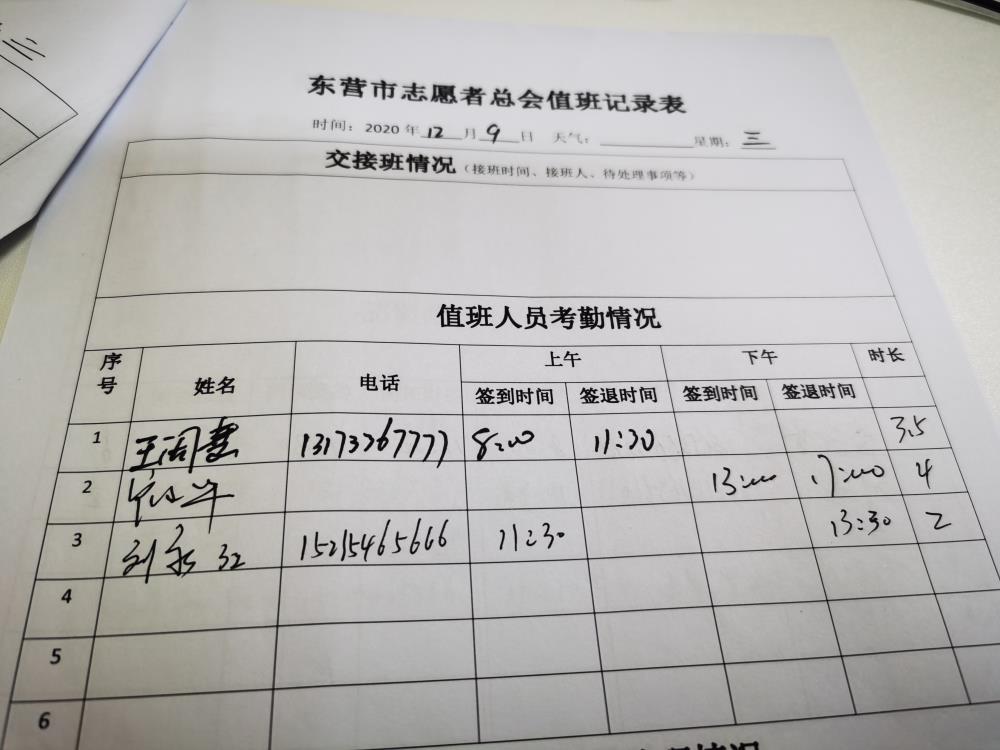 三
东营市志愿者总会值班记录表
时间：2020年12月9日 天气： 星期：三
交接班情况（接班时间、接班人、待处理事项等）
值班人员考勤情况
序号 姓名 电话 上午 下午 时长
签到时间 签退时间 签到时间 签退时间
1 13173267777 8:00 11:30 3.5
2 13:00 17:00 4
3 刘永红 15215465666 11:30 13:30 2
4
5
6